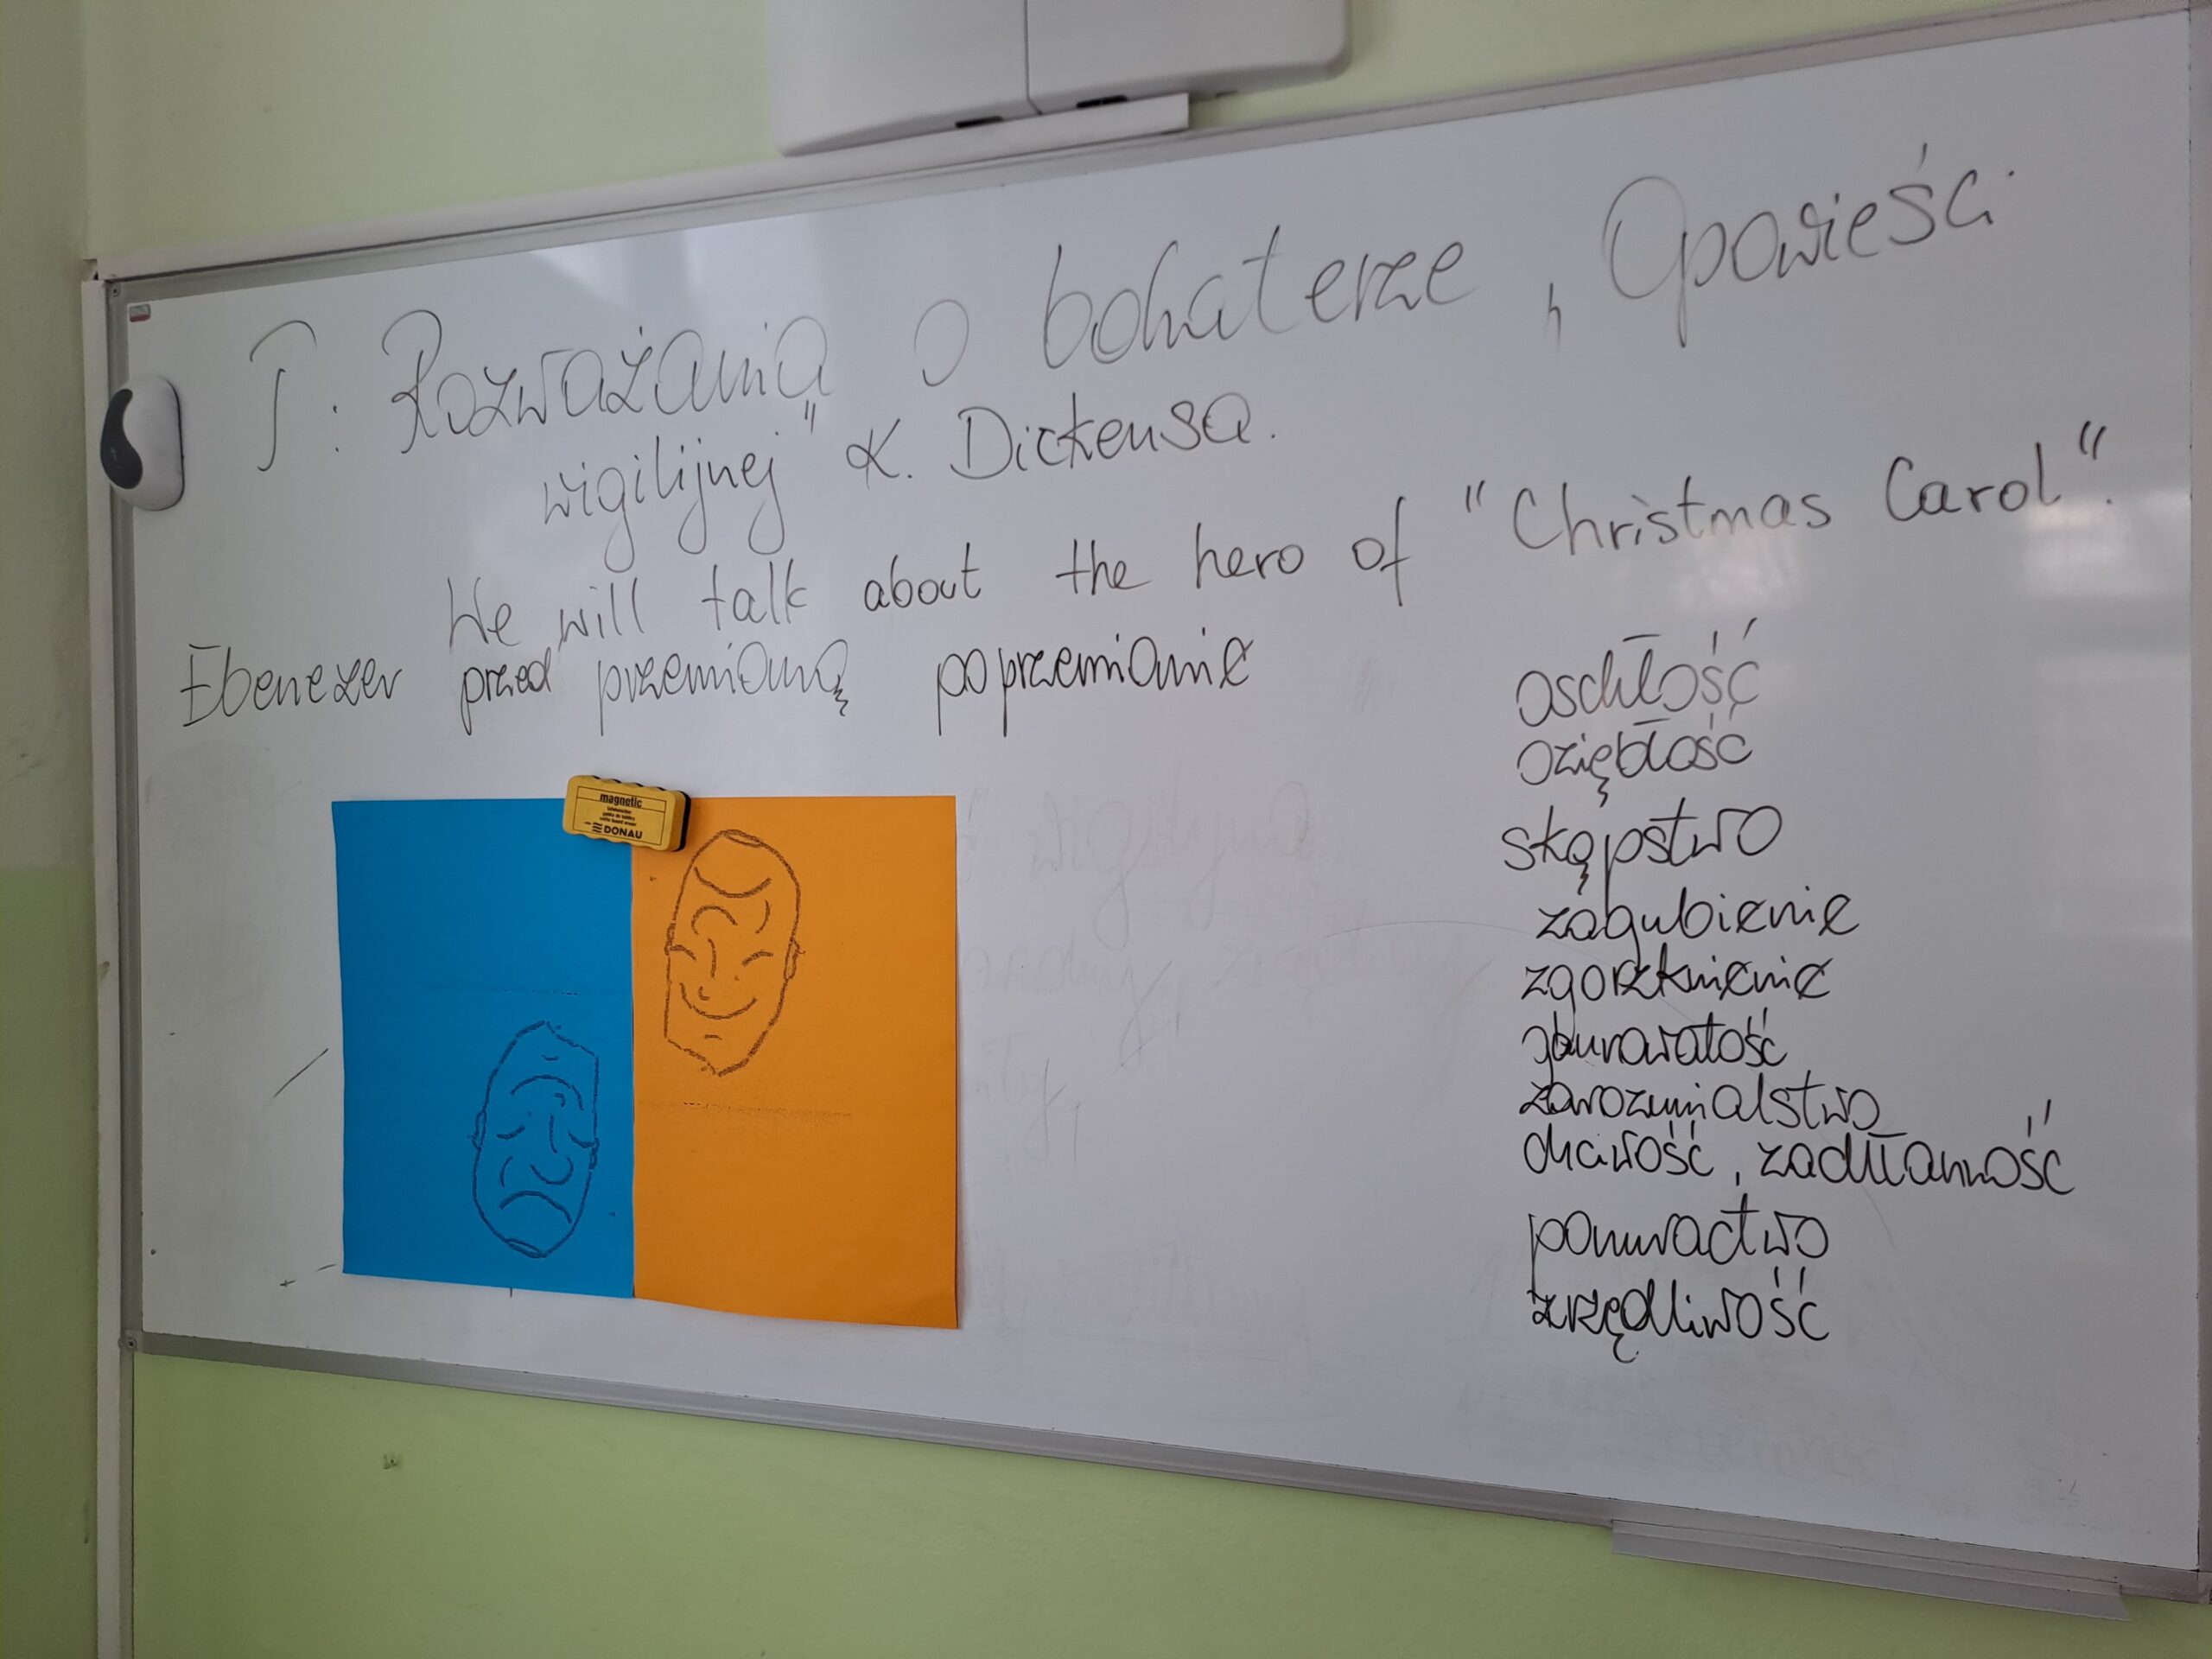 T: Rozważania o bohaterze „Opowieści
wigilijnej" K. Dickensa.
We will talk about the hero of "Christmas Carol".
Ebenezer przed przemianą po przemianie
oschłość
oziębłość
skąpstwo
zagubienie
zgorzknienie
gburowatość
zarozumialstwo
chciwość, zachłanność
ponuractwo
zrzędliwość
magnetic
DONAU